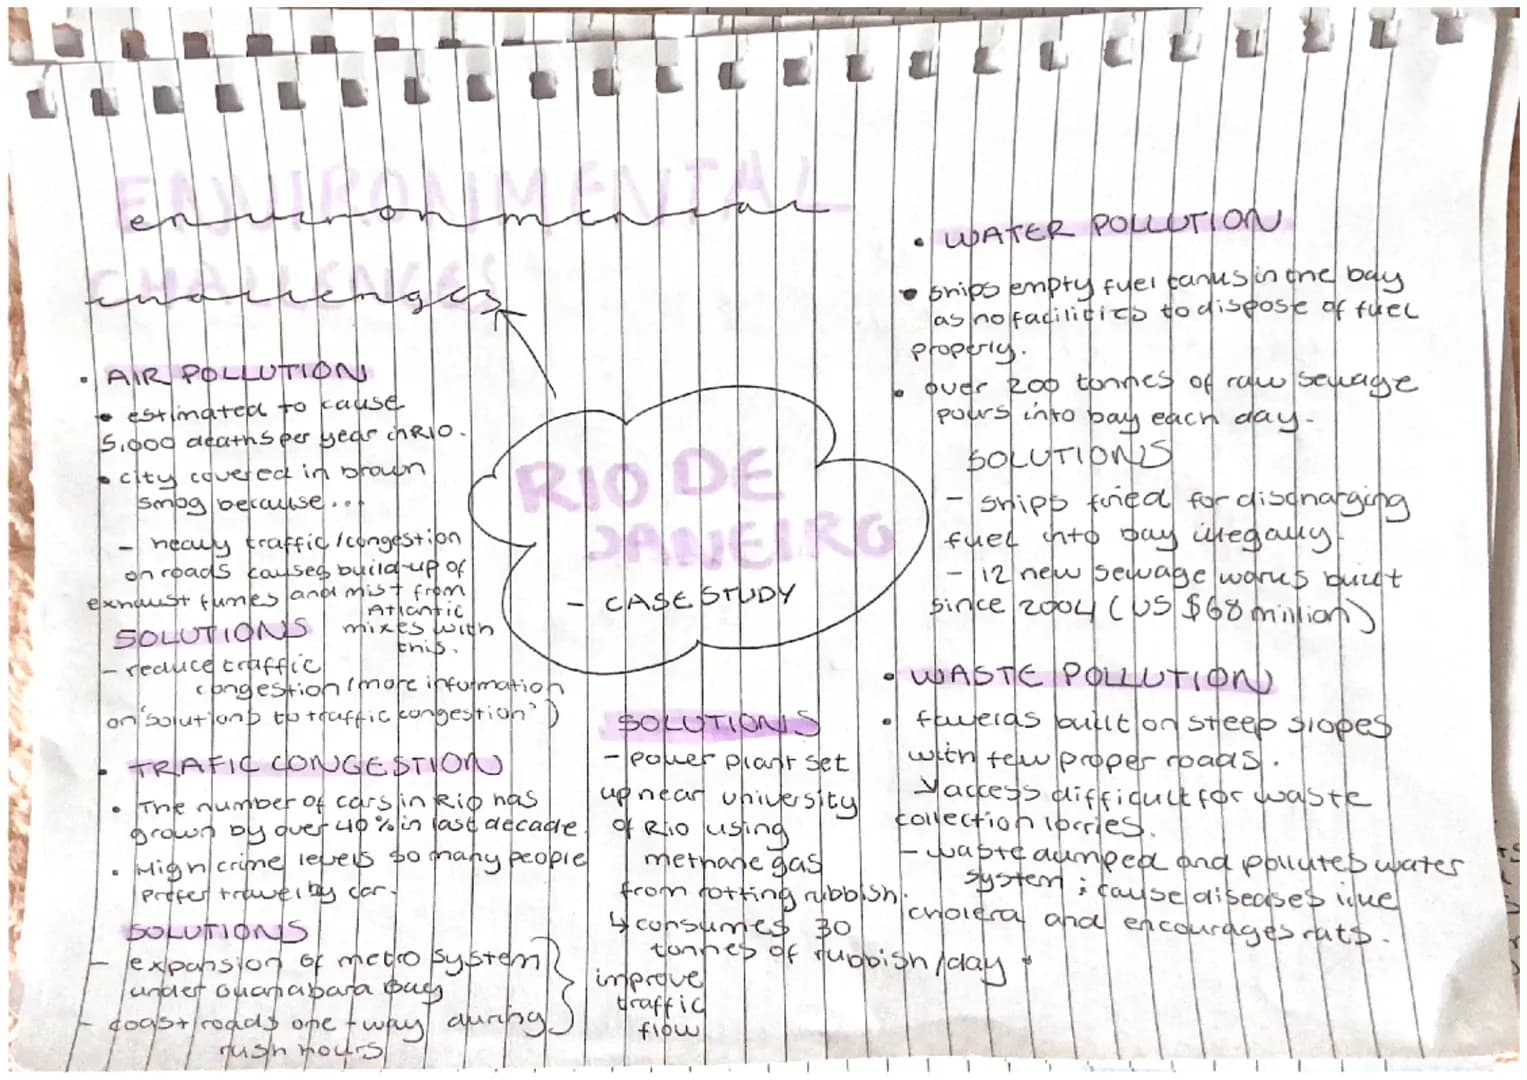 ENVIRONMENTAL
environmental
CHALLENGES
challenges
• AIR POLLUTION
• estimated to cause
5,000 deaths per year in RIO.
• city covered in brown
smog because...
- heavy traffic/congestion
on roads causes build-up of
exhaust fumes and mist from
Atlantic
mixes with
this.
SOLUTIONS
- reduce traffic
congestion (more information
on 'solutions to traffic congestion')
• TRAFIC CONGESTION
• The number of cars in Rio has
grown by over 40% in last decade.
• High crime levels so many people
prefer travel by car.
SOLUTIONS
- expansion of metro system
under Guanabara Bay
- coast roads one-way during
rush hours
improve
traffic
flow
RIO DE
JANEIRO
- CASE STUDY
SOLUTIONS
- power plant set
up near university
of Rio using
methane gas
from rotting rubbish.
↳ consumes 30
tonnes of rubbish/day.
• WATER POLLUTION
• ships empty fuel tanks in the bay
as no facilities to dispose of fuel
properly.
• over 200 tonnes of raw sewage
pours into bay each day.
SOLUTIONS
- ships fined for discharging
fuel into bay illegally.
- 12 new sewage works built
since 2004 (US $68 million)
• WASTE POLLUTION
• favelas built on steep slopes
with few proper roads.
↳ access difficult for waste
collection lorries.
- waste dumped and pollutes water
system; cause diseases like
cholera and encourages rats.